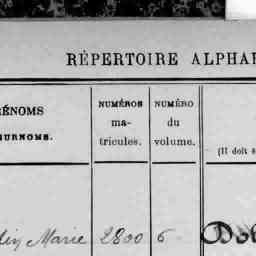 RÉPERTOIRE ALPHA
RÉNOMS
SURNOMS.
NUMÉROS
ma-
tricules.
NUMÉRO
du
volume.
(Il doit
Marie 2800 6 Do